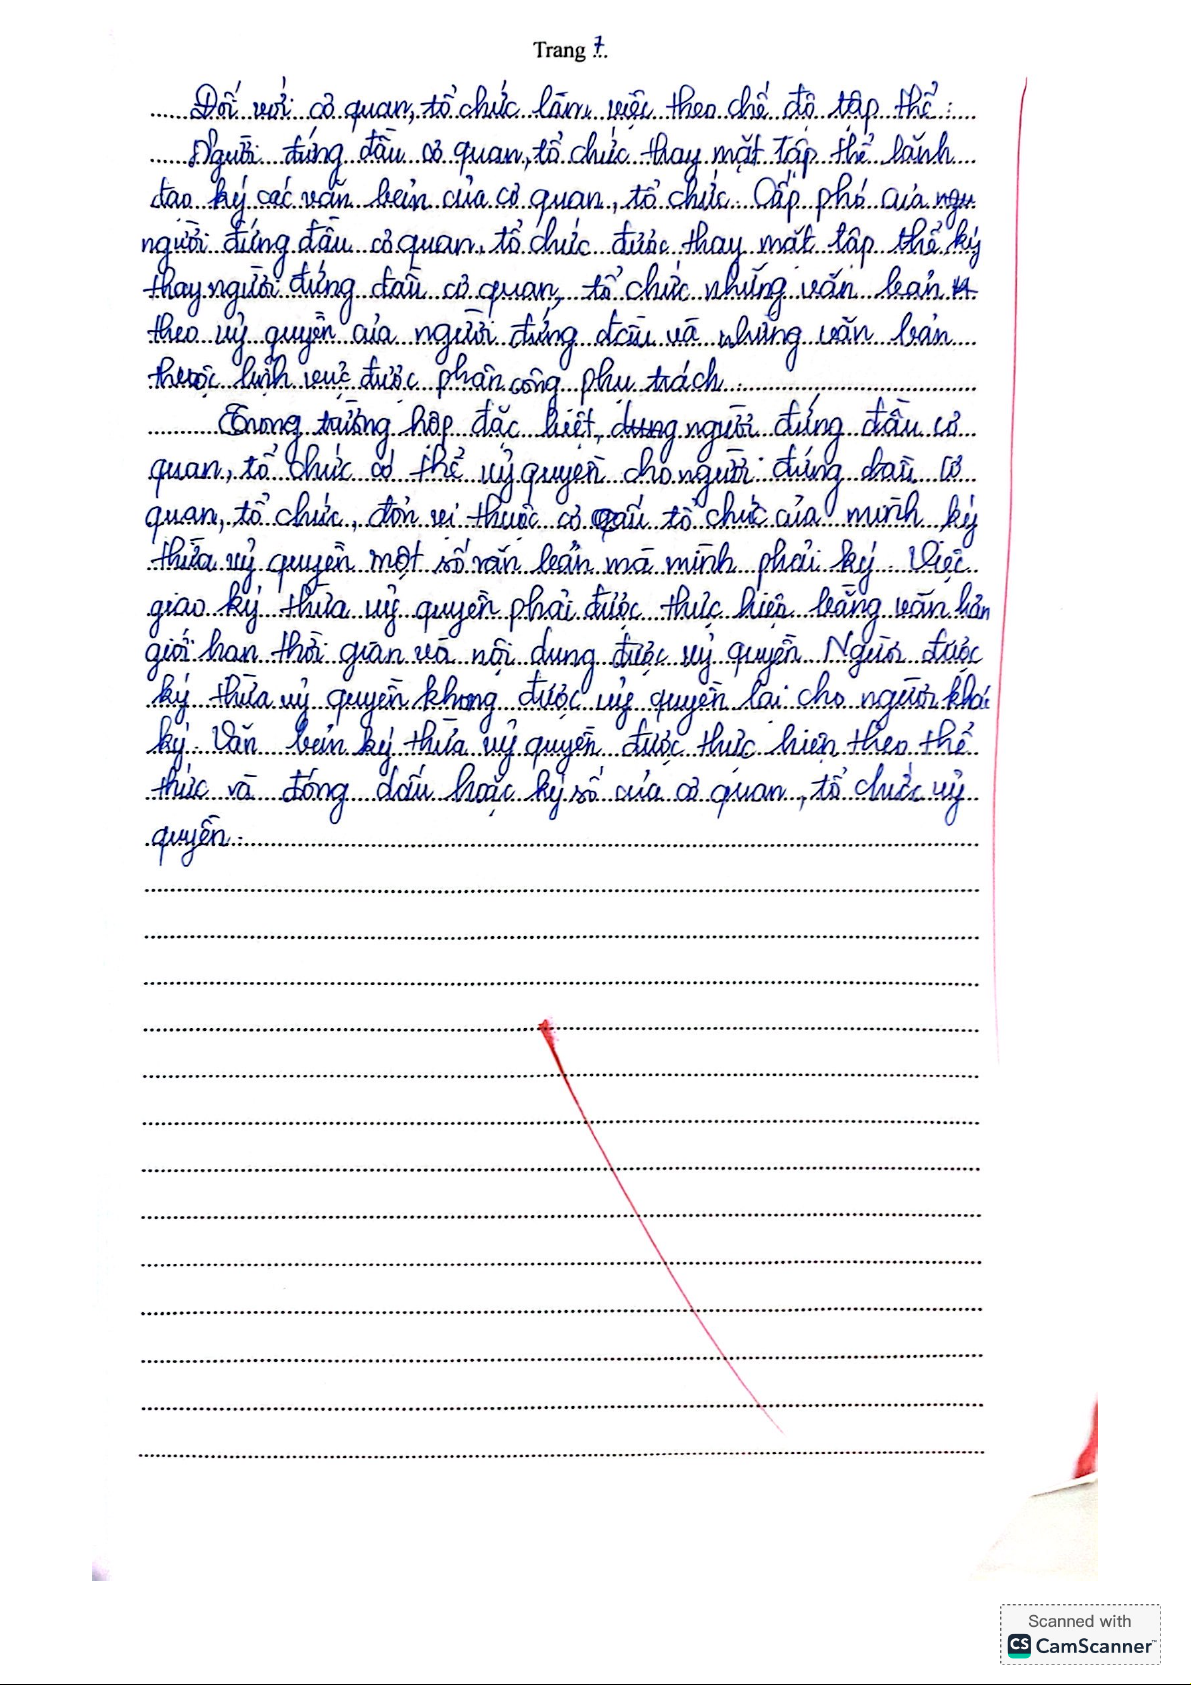 Trang 7
Đối với cơ quan, tổ chức làm việc theo chế độ tập thể:
Người đứng đầu cơ quan, tổ chức thay mặt tập thể lãnh
đạo ký các văn bản của cơ quan, tổ chức. Cấp phó của ngư
người đứng đầu cơ quan, tổ chức được thay mặt tập thể ký
thay người đứng đầu cơ quan, tổ chức những văn bản
theo uỷ quyền của người đứng đầu và những văn bản
thuộc lĩnh vực được phân công phụ trách.
Trong trường hợp đặc biệt, người đứng đầu cơ
quan, tổ chức có thể uỷ quyền cho người đứng đầu cơ
quan, tổ chức, đơn vị thuộc cơ cấu tổ chức của mình ký
thừa uỷ quyền một số văn bản mà mình phải ký. Việc
giao ký thừa uỷ quyền phải được thực hiện bằng văn bản
giới hạn thời gian và nội dung được uỷ quyền. Người được
ký thừa uỷ quyền không được uỷ quyền lại cho người khác
ký. Văn bản ký thừa uỷ quyền được thực hiện theo thể
thức và đóng dấu hoặc ký số của cơ quan, tổ chức uỷ
quyền.
Scanned with
CS CamScanner